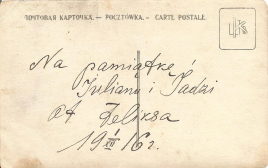 ПОЧТОВАЯ КАРТОЧКА. — POCZTÓWKA. — CARTE POSTALE.
Na pamiątkę
Juliana i Tadzi
od Feliksa
19 1/XII 16 r.